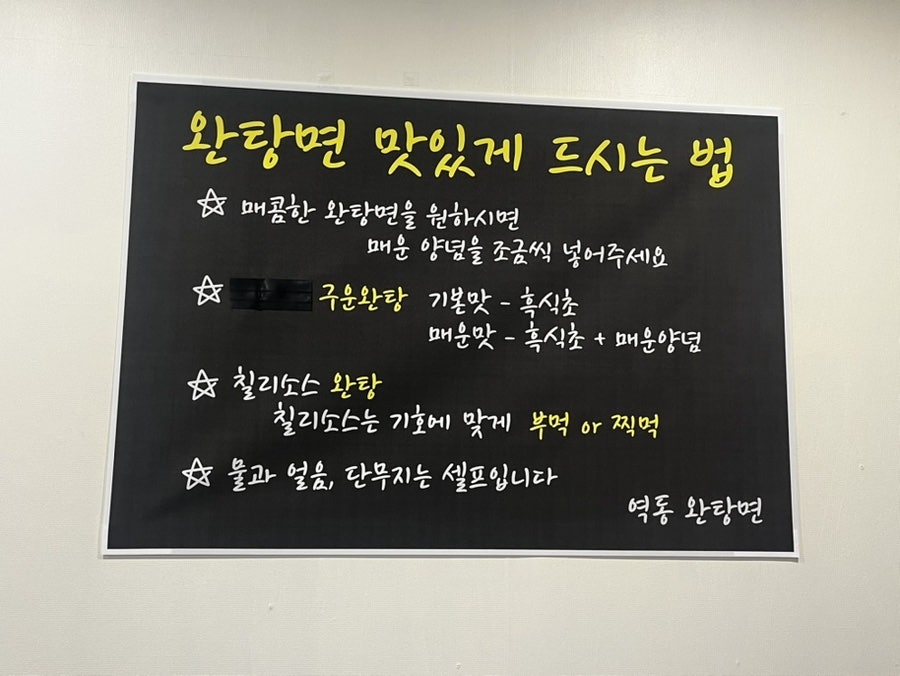 완탕면 맛있게 드시는 법
☆ 매콤한 완탕면을 원하시면
매운 양념을 조금씩 넣어주세요
☆ 구운완탕 기본맛 - 흑식초
매운맛 - 흑식초 + 매운양념
☆ 칠리소스 완탕
칠리소스는 기호에 맞게 부먹 or 찍먹
☆ 물과 얼음, 단무지는 셀프입니다
역동 완탕면